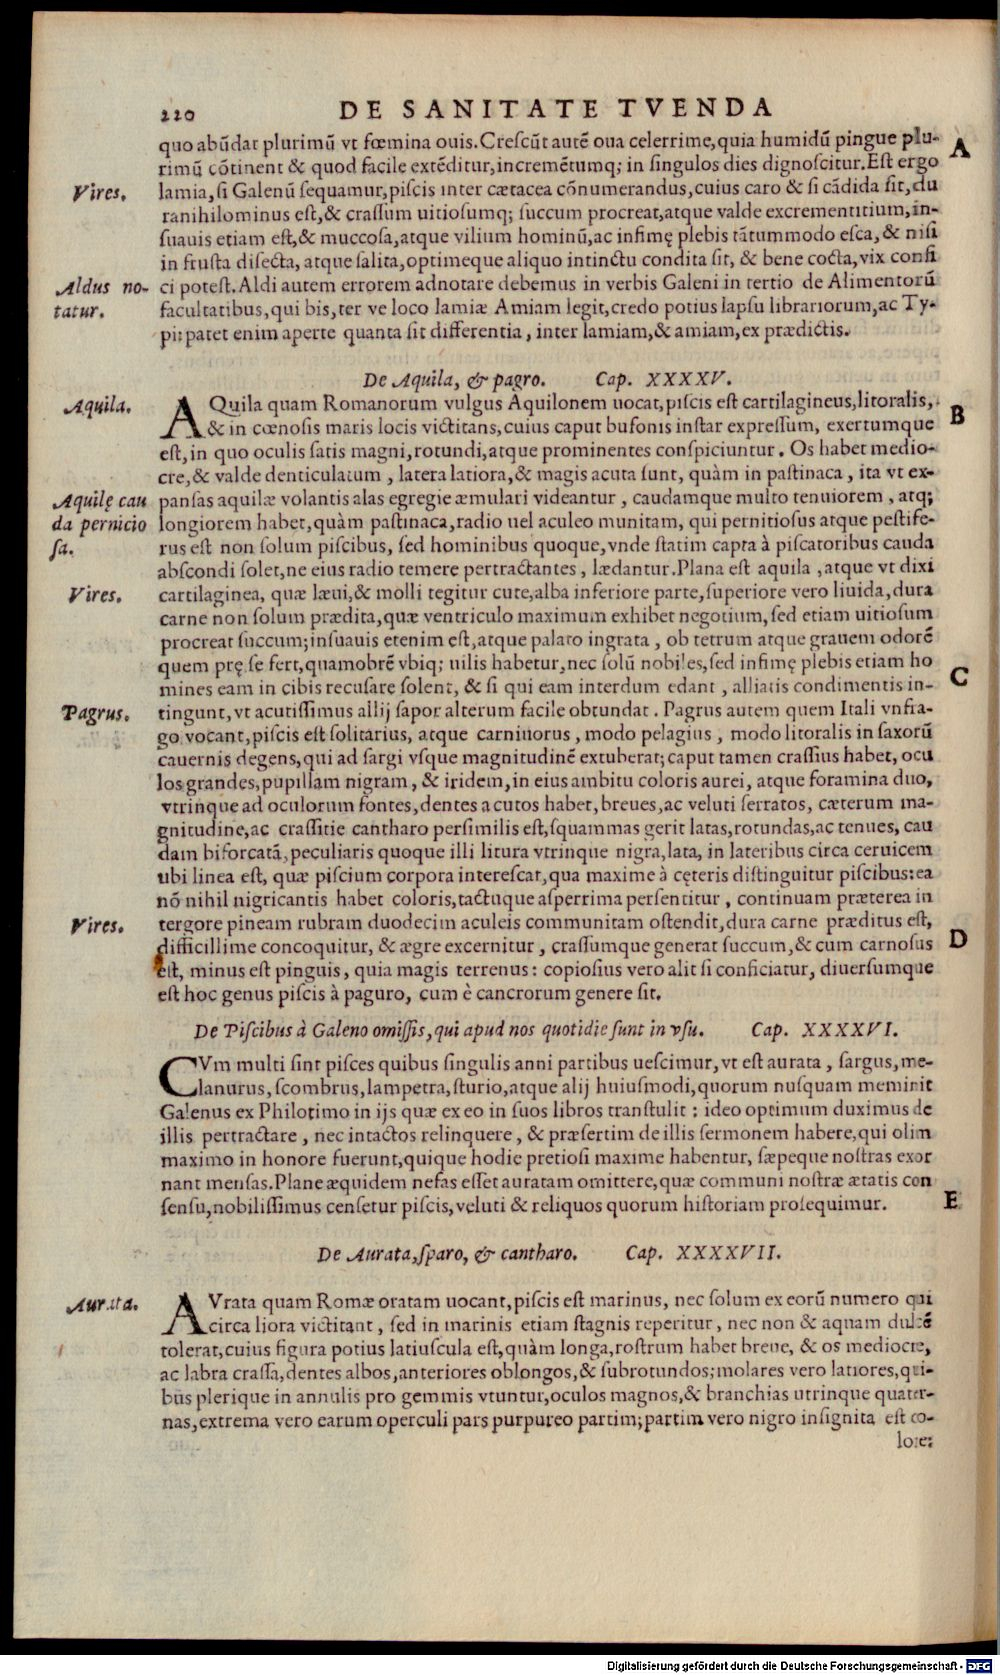 220 DE SANITATE TVENDA
quo abũdat plurimũ vt fœmina ouis. Crescũt autẽ oua celerrime, quia humidũ pingue plu-
A
rimũ cõtinent & quod facile extẽditur, incremẽtumq; in singulos dies dignoscitur. Est ergo
Vires.
lamia, si Galenũ sequamur, piscis inter cætacea cõnumerandus, cuius caro & si cãdida sit, du
ranihilominus est, & crassum uitiosumq; succum procreat, atque valde excrementitium, in-
suauis etiam est, & muccosa, atque vilium hominũ, ac infimę plebis tãtummodo esca, & nisi
in frusta disecta, atque salita, optimeque aliquo intinctu condita sit, & bene cocta, vix confi
Aldus no-
ci potest. Aldi autem errorem adnotare debemus in verbis Galeni in tertio de Alimentorũ
tatur.
facultatibus, qui bis, ter ve loco lamiæ Amiam legit, credo potius lapsu librariorum, ac Ty-
pi: patet enim aperte quanta sit differentia, inter lamiam, & amiam, ex prædictis.
De Aquila, & pagro. Cap. XXXXV.
Aquila.
AQuila quam Romanorum vulgus Aquilonem uocat, piscis est cartilagineus, litoralis,
B
& in cœnosis maris locis victitans, cuius caput bufonis instar expressum, exertumque
est, in quo oculis satis magni, rotundi, atque prominentes conspiciuntur. Os habet medio-
cre, & valde denticulatum, latera latiora, & magis acuta sunt, quàm in pastinaca, ita vt ex-
Aquilę cau
pansas aquilæ volantis alas egregie æmulari videantur, caudamque multo tenuiorem, atq;
da pernicio
longiorem habet, quàm pastinaca, radio uel aculeo munitam, qui pernitiosus atque pestife-
sa.
rus est non solum piscibus, sed hominibus quoque, vnde statim capta à piscatoribus cauda
abscondi solet, ne eius radio temere pertractantes, lædantur. Plana est aquila, atque vt dixi
Vires.
cartilaginea, quæ læui, & molli tegitur cute, alba inferiore parte, superiore vero liuida, dura
carne non solum prædita, quæ ventriculo maximum exhibet negotium, sed etiam uitiosum
procreat succum; insuauis etenim est, atque palato ingrata, ob tetrum atque grauem odorẽ
quem prę se fert, quamobrẽ vbiq; uilis habetur, nec solũ nobiles, sed infimę plebis etiam ho
C
mines eam in cibis recusare solent, & si qui eam interdum edant, alliatis condimentis in-
Pagrus.
tingunt, vt acutissimus allij sapor alterum facile obtundat. Pagrus autem quem Itali vnfra-
go vocant, piscis est solitarius, atque carniuorus, modo pelagius, modo litoralis in saxorũ
cauernis degens, qui ad sargi vsque magnitudinẽ extuberat; caput tamen crassius habet, ocu
los grandes, pupillam nigram, & iridem, in eius ambitu coloris aurei, atque foramina duo,
vtrinque ad oculorum fontes, dentes acutos habet, breues, ac veluti serratos, cæterum ma-
gnitudine, ac crassitie cantharo persimilis est, squammas gerit latas, rotundas, ac tenues, cau
dam biforcatã, peculiaris quoque illi litura vtrinque nigra, lata, in lateribus circa ceruicem
ubi linea est, quæ piscium corpora intersecat, qua maxime à cęteris distinguitur piscibus: ea
nõ nihil nigricantis habet coloris, tactuque asperrima persentitur, continuam præterea in
Vires.
tergore pineam rubram duodecim aculeis communitam ostendit, dura carne præditus est,
D
difficillime concoquitur, & ægre excernitur, crassumque generat succum, & cum carnosus
est, minus est pinguis, quia magis terrenus: copiosius vero alit si conficiatur, diuersumque
est hoc genus piscis à paguro, cum è cancrorum genere sit.
De Piscibus à Galeno omissis, qui apud nos quotidie sunt in vsu. Cap. XXXXVI.
CVm multi sint pisces quibus singulis anni partibus uescimur, vt est aurata, sargus, me-
lanurus, scombrus, lampetra, sturio, atque alij huiusmodi, quorum nusquam meminit
Galenus ex Philotimo in ijs quæ ex eo in suos libros transtulit: ideo optimum duximus de
illis pertractare, nec intactos relinquere, & præsertim de illis sermonem habere, qui olim
maximo in honore fuerunt, quique hodie pretiosi maxime habentur, sæpeque nostras exor
nant mensas. Plane æquidem nefas esset auratam omittere, quæ communi nostræ ætatis con
E
sensu, nobilissimus censetur piscis, veluti & reliquos quorum historiam prosequimur.
De Aurata, sparo, & cantharo. Cap. XXXXVII.
Aurata.
AVrata quam Romæ oratam uocant, piscis est marinus, nec solum ex eorũ numero qui
circa liora victitant, sed in marinis etiam stagnis reperitur, nec non & aquam dulcẽ
tolerat, cuius figura potius latiuscula est, quàm longa, rostrum habet breue, & os mediocre,
ac labra crassa, dentes albos, anteriores oblongos, & subrotundos; molares vero latiores, qui-
bus plerique in annulis pro gemmis vtuntur, oculos magnos, & branchias utrinque quater-
nas, extrema vero earum operculi pars purpureo partim; partim vero nigro insignita est co-
lore:
Digitalisierung gefördert durch die Deutsche Forschungsgemeinschaft - DFG